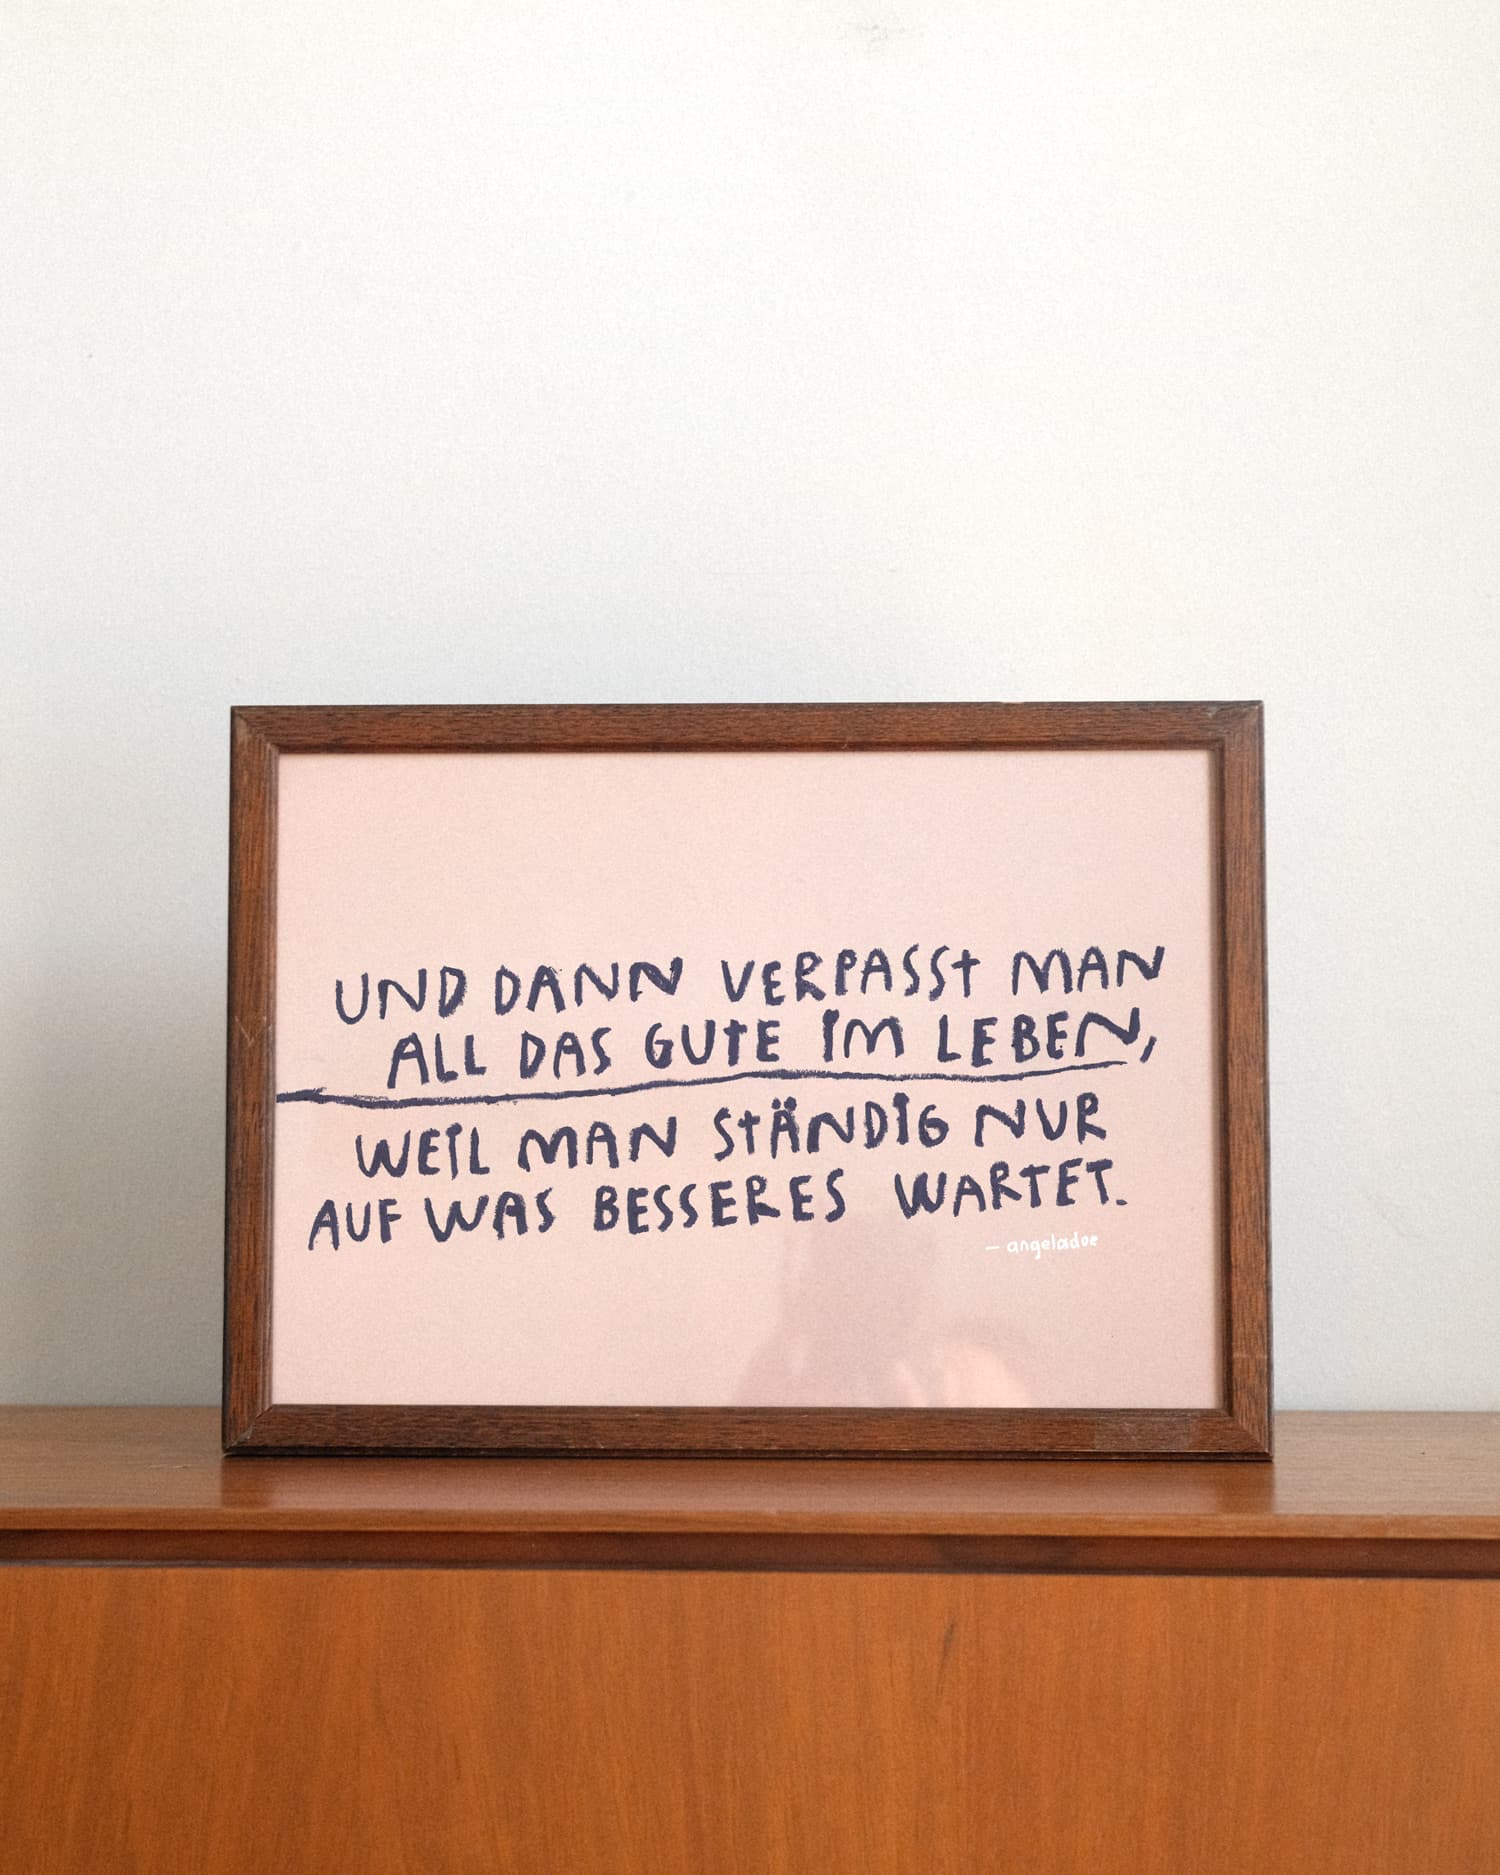 UND DANN VERPASST MAN
ALL DAS GUTE IM LEBEN,
WEIL MAN STÄNDIG NUR
AUF WAS BESSERES WARTET.
— angeladoe